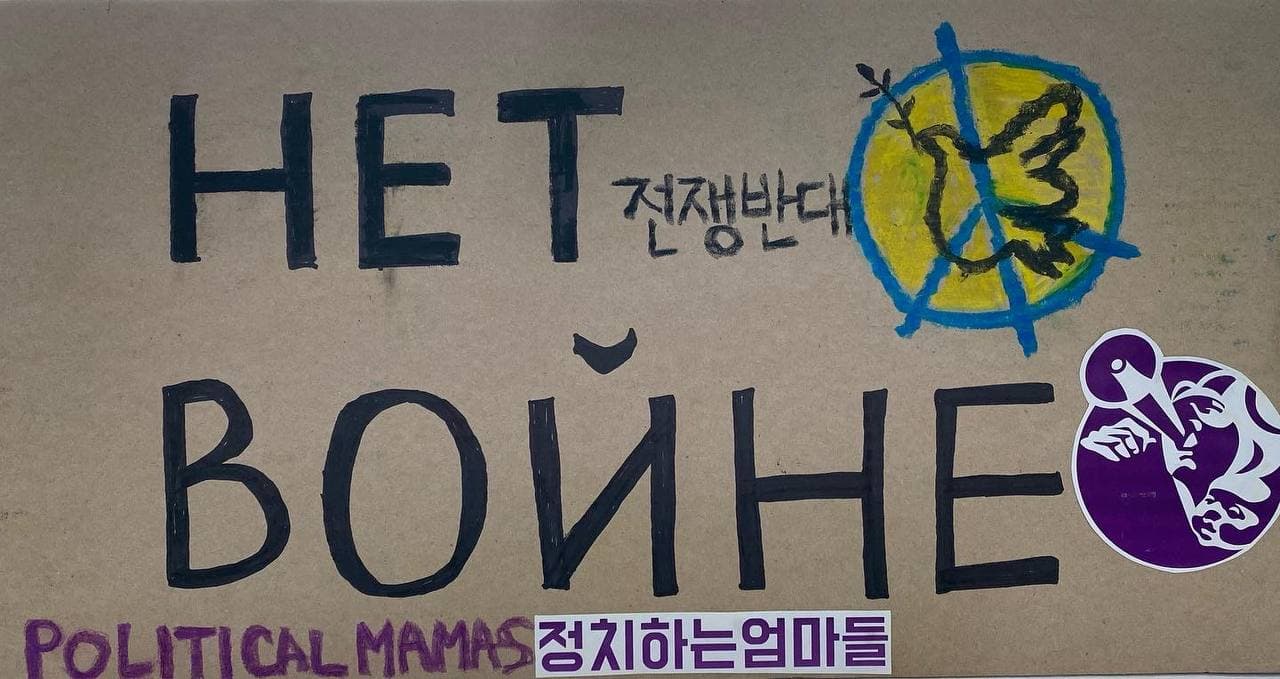 НЕТ
전쟁반대
ВОЙНЕ
POLITICAL MAMAS 정치하는엄마들